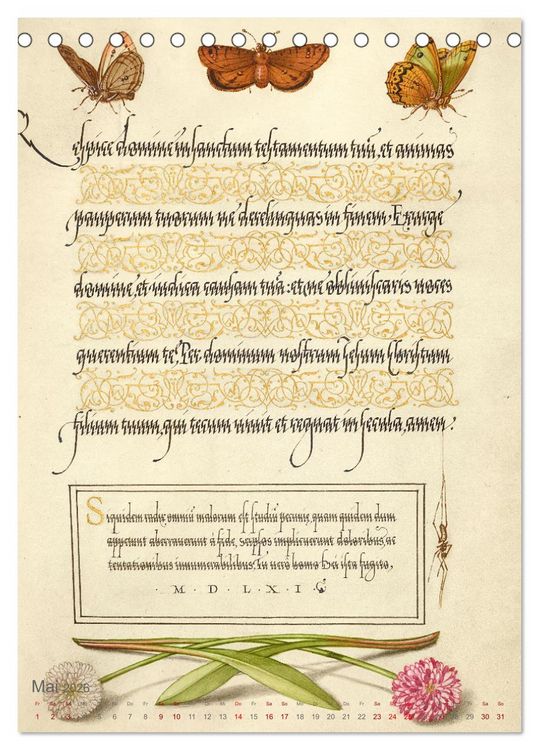 Respice domine in sanctum testamentum tuū, et animas
pauperum tuorum ne derelinquas in finem. Exurge
domine, et iudica causam tuā: et ne obliuiscaris uoces
querentium te. Per dominum nostrum Jesum Christum
filium tuum, qui tecum uiuit et regnat in secula, amen.
Siquidem radix omniū malorum est studiū pecunię, quam quidem dum
appetunt aberrauerunt à fide, seipsos implicuerunt doloribus, ac
tentationibus innumerabilibus. Tu uero homo Dei ista fugito,
· M · D · L · X · I ·
Mai 2026
Fr Sa So Mo Di Mi Do Fr Sa So Mo Di Mi Do Fr Sa So Mo Di Mi Do Fr Sa So Mo Di Mi Do Fr Sa So
1 2 3 4 5 6 7 8 9 10 11 12 13 14 15 16 17 18 19 20 21 22 23 24 25 26 27 28 29 30 31